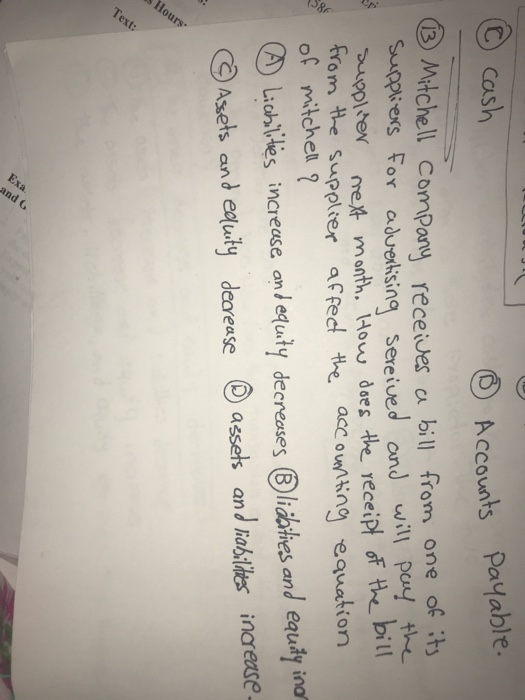 Hours:
Text:
Exa
and G
(586
Ⓒ cash Ⓓ Accounts payable.
⑬ Mitchell Company receives a bill from one of its
suppliers for advertising sereived and will pay the
supplier next month. How does the receipt of the bill
from the supplier affect the accounting equation
of mitchell?
Ⓐ Liabilities increase and equity decreases Ⓑ liabilities and equity incr
Ⓒ Assets and equity decrease Ⓓ assets and liabilities increase.